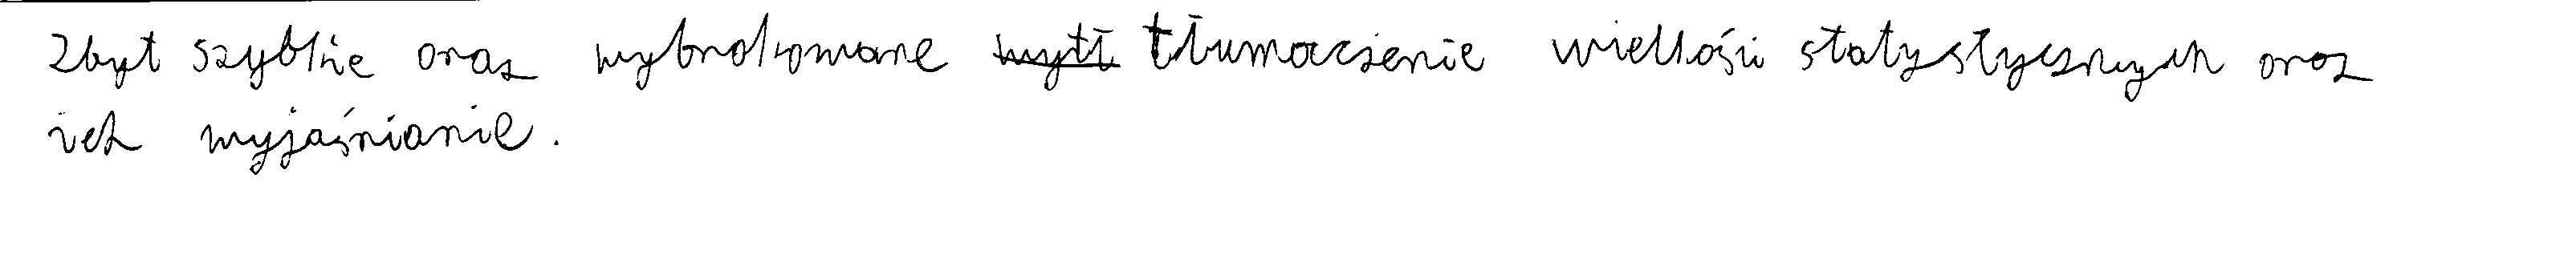 Zbyt szybkie oraz wybrakowane tłumaczenie wielkości statystycznych oraz
ich wyjaśnianie.